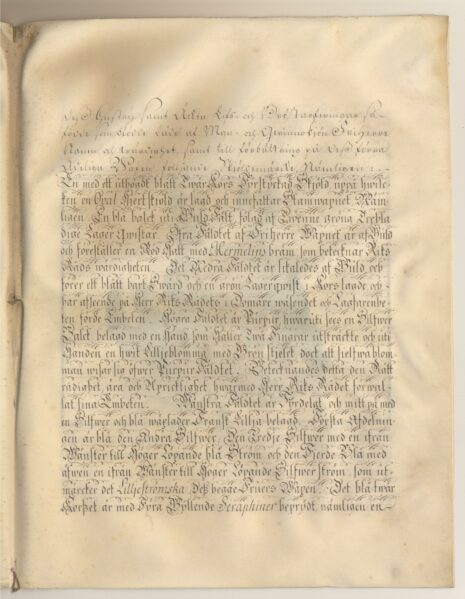 dess Hustru samt Ächta Lifs- och Bröstarfwingar så-
som både af Man- och Qwinnokön Friherre
Namn och wärdighet, samt till förbättring på dess förra
Adeliga Wapen följande Sköldemärcke Nämligen:
En med ett utbögdt blått Twär Kors Förstyckad Sköld, uppå hwil-
ken en Oval Hjertsköld är lagd och innefattar Stamwapnet Näm-
ligen En blå balck uti Guld Fält, följd af Twenne gröna Trebla
dige Lager Qwistar. Öfra Fäldtet af Friherre Wapnet är af Guld
och föreställer en Röd Hatt med Hermelins bräm som betecknar Riks
Råds wärdigheten. Det Nedra Fäldtet är likaledes af Guld, och
förer ett blått bart Swärd och en grön Lagerqwist i Kors lagde och
har afseende på Herr Riks Rådets i Domare wäsendet och Lagfarenhe-
ten förde Embeten. Högra Fäldtet är Purpur, hwaruti sees en Silfwer
Balck, belagd med en Hand som håller Twå Fingrar utsträckte och uti
Handen en hwit Lilljeblomma med Grön stjelck dock att sjelfwa blom-
man wisar sig öfwer Purpur Fäldtet. Betecknandes detta den Rätt
rådighet, ära och Uprichtighet hwarmed Herr Riks Rådet förwal-
lat sina Embeten. Wänstra Fäldtet är Fyrdelgt, och mitt på med
en Silfwer och blå wäxlader Fransk Lillja belagd, Första Afdelnin-
gen är blå den Andra Silfwer, Den Tredje Silfwer med en ifrån
Wänster till Höger Löpande blå Ström och den Fjerde Blå med
äfwen en ifrån Wänster till Höger Löpande Silfwer ström, som ut-
märcker det Liljeströmska Dess begge Fruers Wapen. Det blå twär
Korset är med Fyra Gyllende Seraphiner beprydt, nämligen en-